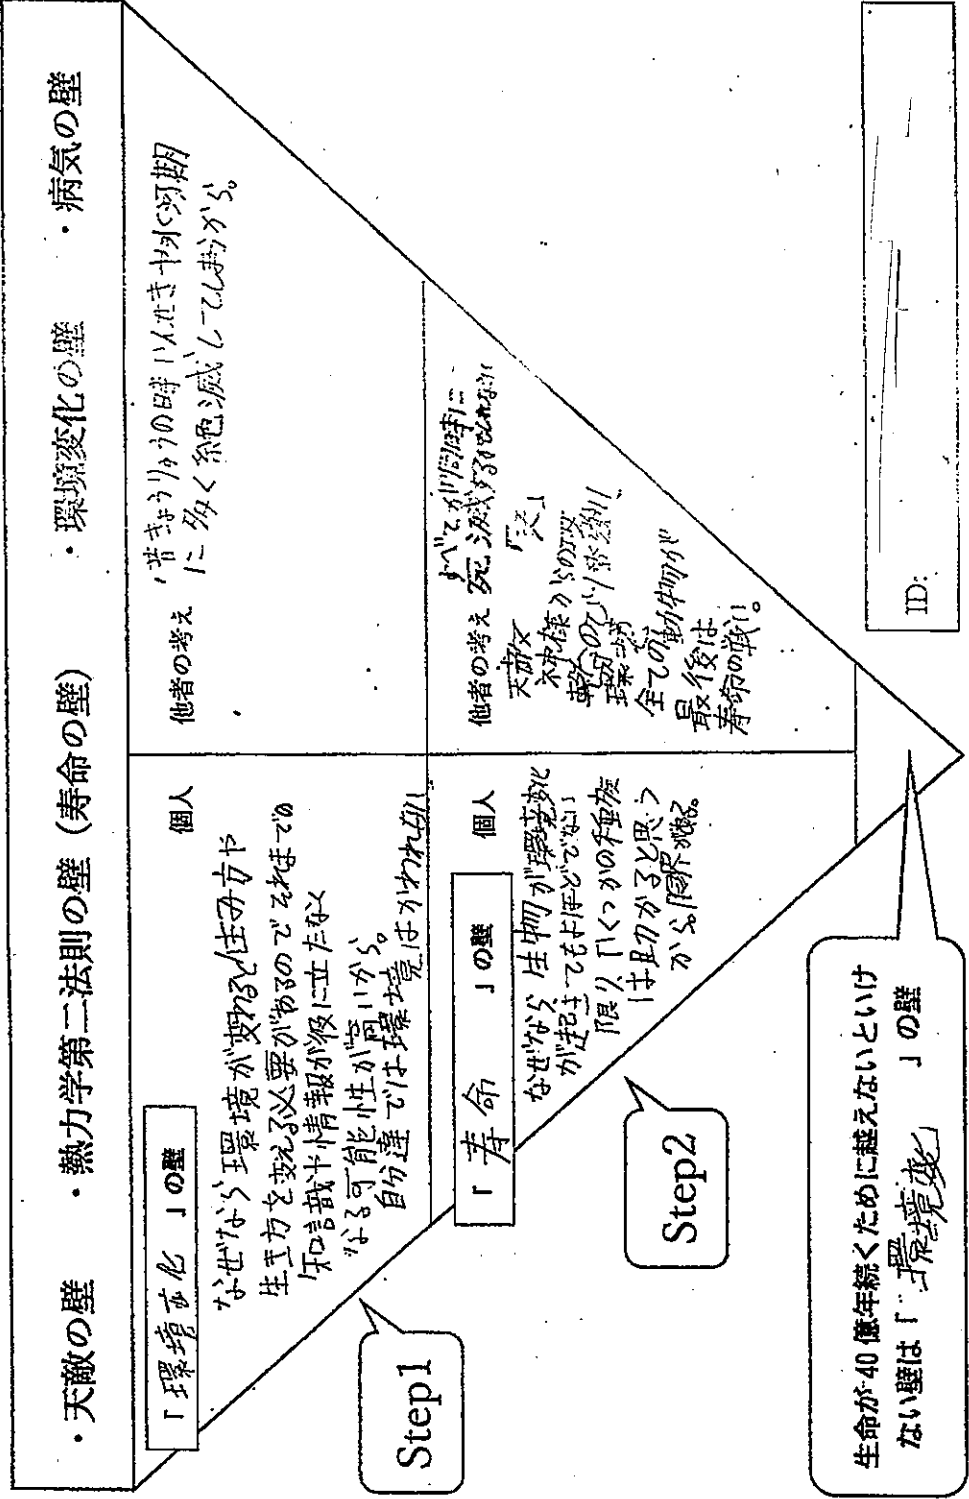 ・天敵の壁　・熱力学第二法則の壁（寿命の壁）　・環境変化の壁　・病気の壁
「環境変化」の壁
個人
なぜなら環境が変わると住み方や
生き方を変える必要があるのでそれまでの
知識や情報が役に立たなく
なる可能性が高いから。
自分達では環境はかわれない
他者の考え
・昔きょうりゅうの時いんせきや氷河期
に多く絶滅してしまうから。
Step1
「寿命」の壁
個人
なぜなら 生物が環境変化
が起きてもよほどでない
限りいくつかの種族
は助かると思う
から。限界がある。
他者の考え
すべてが同時に
死滅するかもしれない
天敵 「災」
神様からの
環境
全ての動物が
最後は
寿命の戦い。
Step2
生命が40億年続くために越えないといけ
ない壁は「環境変化」の壁
ID: